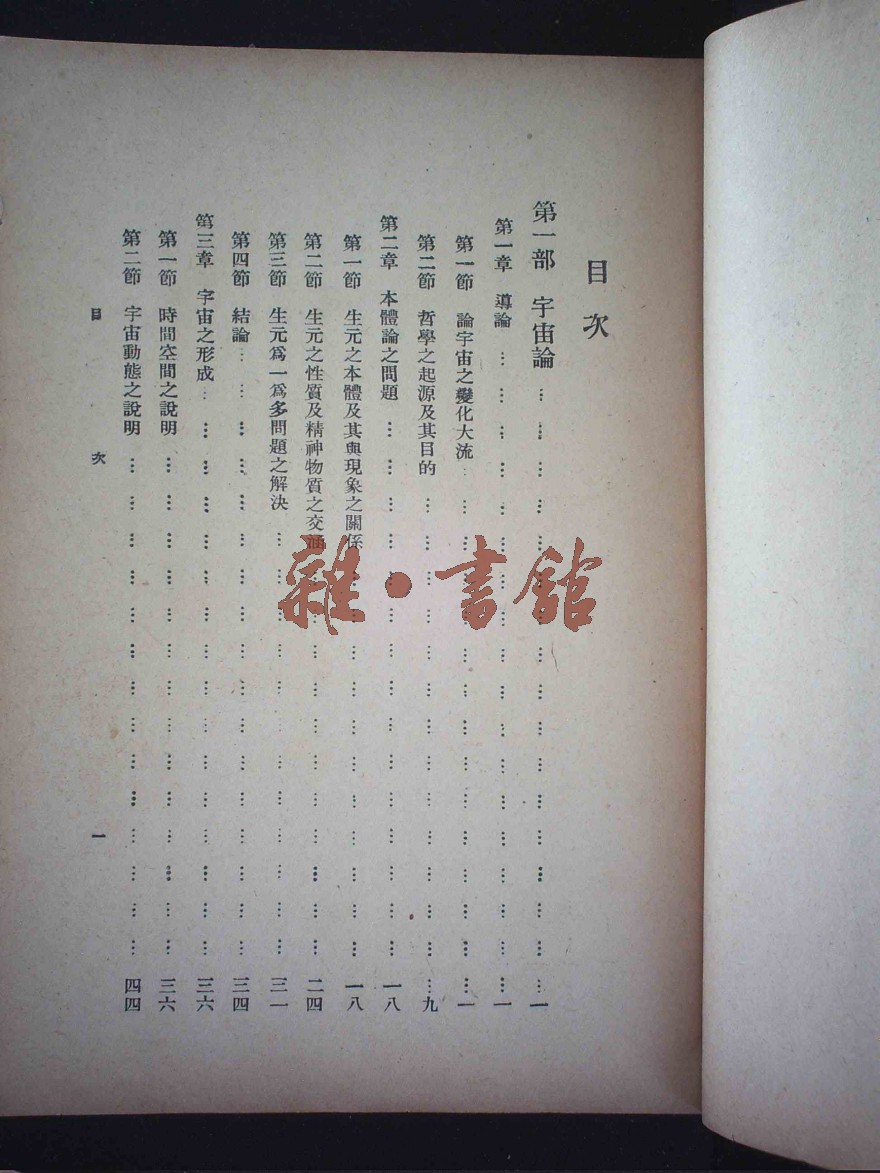 目次
第一部 宇宙論 …………………………………………… 一
第一章 導論 …………………………………………… 一
第一節 論宇宙之變化大流 …………………………………… 一
第二節 哲學之起源及其目的 …………………………………… 九
第二章 本體論之問題 …………………………………… 一八
第一節 生元之本體及其與現象之關係 …………………………… 一八
第二節 生元之性質及精神物質之交涵 …………………………… 二四
第三節 生元爲一爲多問題之解決 …………………………… 三一
第四節 結論 …………………………………………… 三四
第三章 宇宙之形成 …………………………………… 三六
第一節 時間空間之說明 …………………………………… 三六
第二節 宇宙動態之說明 …………………………………… 四四
目次 一
雜·書館